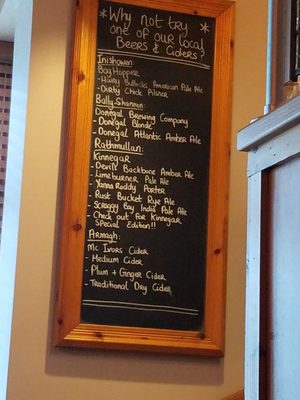 *Why not try *
one of our local
Beers & Ciders?
Inishowen:
Bog Hopper
- Hairy Bullocks American Pale Ale
- Dirty Chick Pilsner
Bally-Shannon:
Donegal Brewing Company
- Donegal Blonde
- Donegal Atlantic Amber Ale
Rathmullan:
Kinnegar
- Devil's Backbone Amber Ale
- Limeburner Pale Ale
- Yanna Roddy Porter
- Rust Bucket Rye Ale
- Scraggy Bay India Pale Ale
- Check out for Kinnegar
Special Edition!!
Armagh:
Mc Ivors Cider
- Medium Cider
- Plum + Ginger Cider
- Traditional Dry Cider